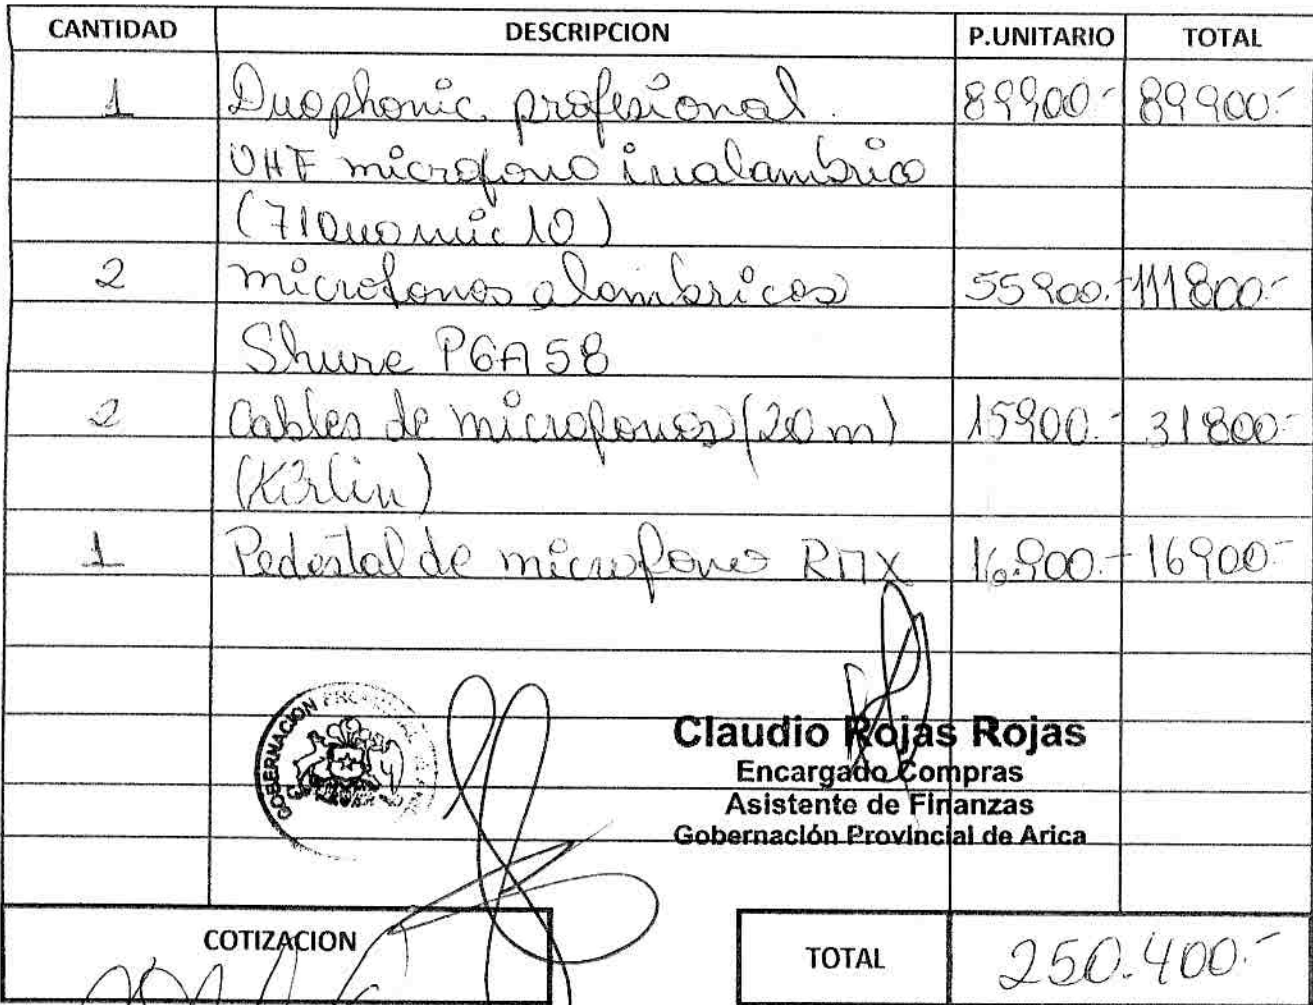 CANTIDAD DESCRIPCION P.UNITARIO TOTAL
1 Duophonic profesional. 89900.- 89900.-
UHF microfono inalambrico
(71Duomic10)
2 microfonos alambricos 55900.- 111800.-
Shure PGA58
2 Cables de microfonos (20m) 15900.- 31800.-
(Kirlin)
1 Pedestal de microfono RMX 16.900.- 16900.-
GOBERNACION
Claudio Rojas Rojas
Encargado Compras
Asistente de Finanzas
Gobernación Provincial de Arica
COTIZACION TOTAL 250.400.-